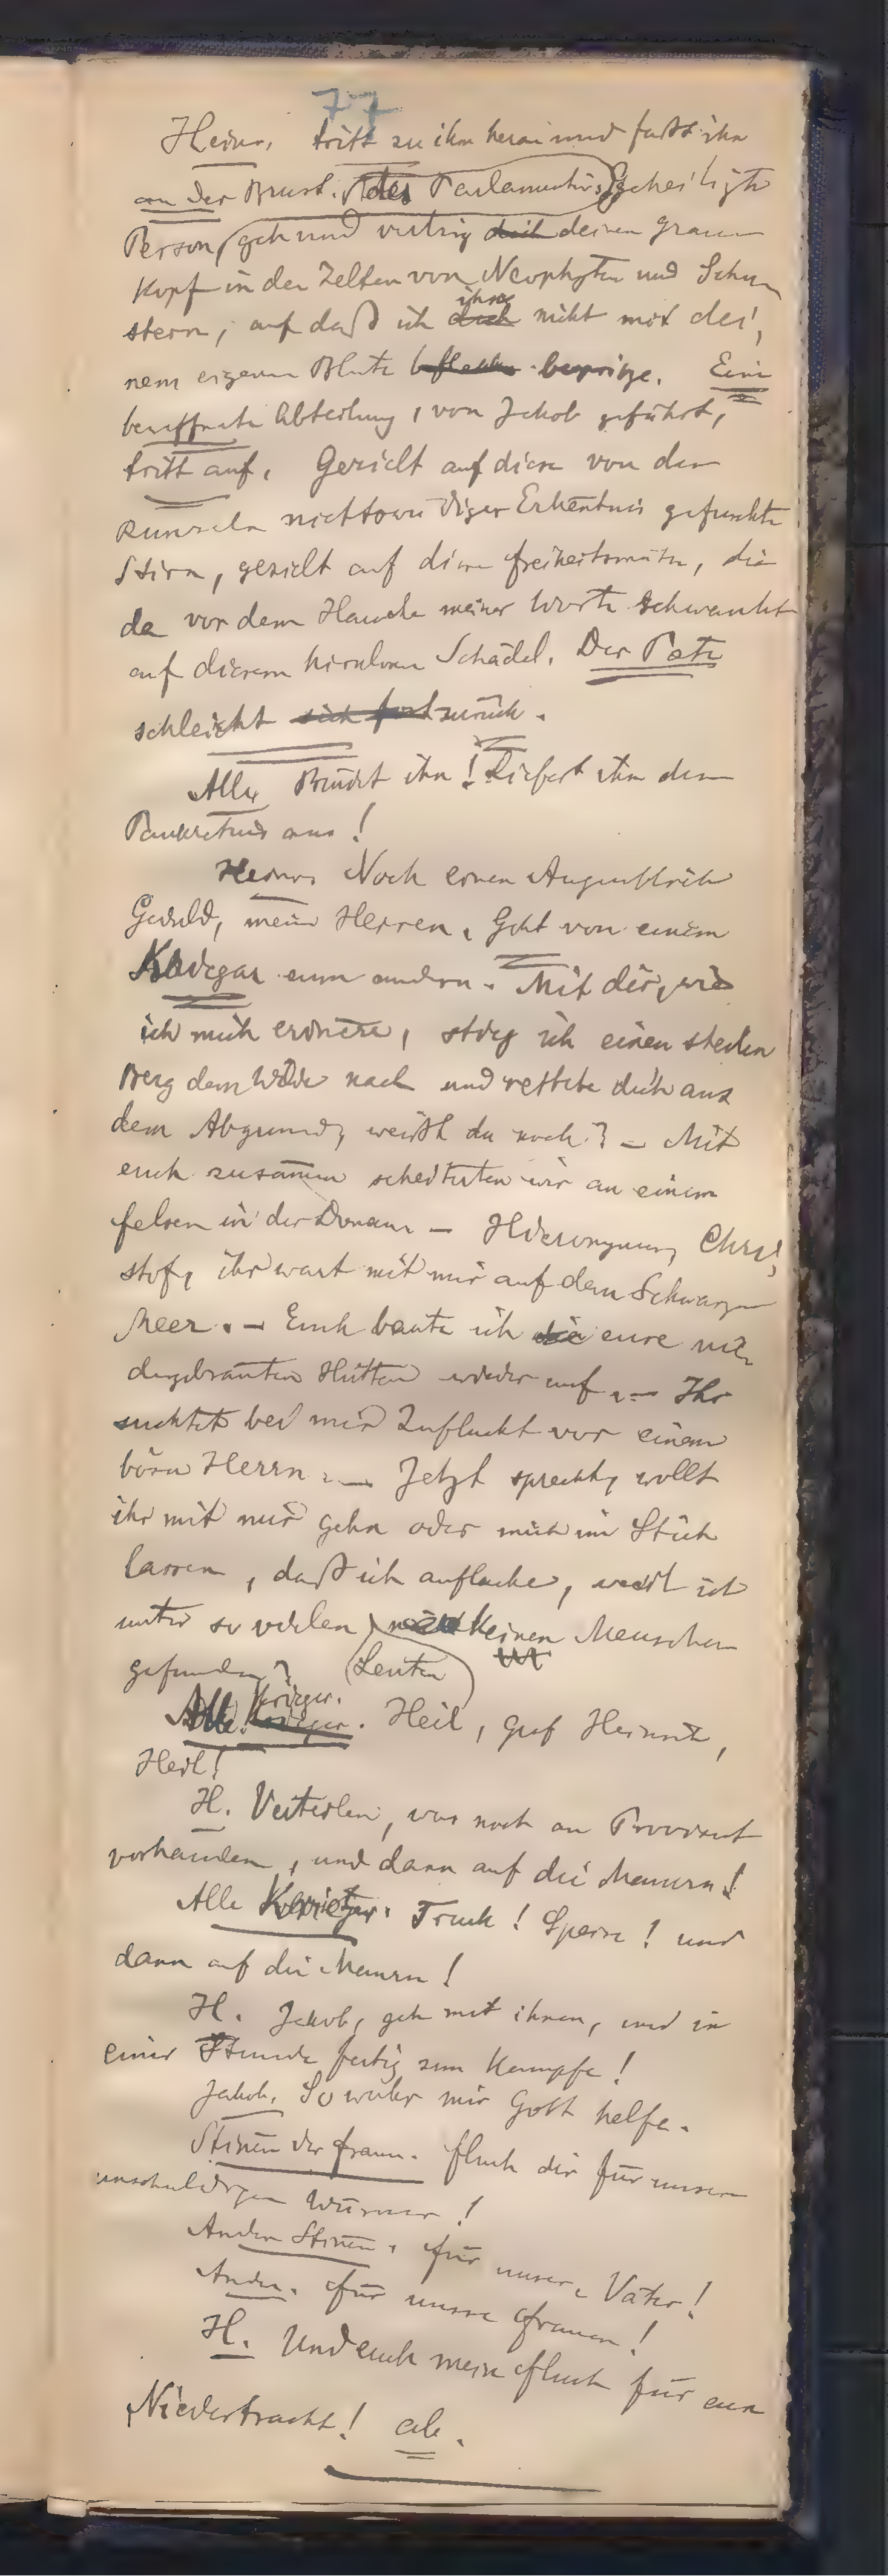 77
Heinr. tritt zu ihm heran und fasst ihn
an der Brust. des Parlamentärs geheiligte
Person, geh und verbirg dich deinen grauen
Kopf in den Zelten von Neophyten und Schu-
ihn
stern, auf daß ich dich nicht mit dei-
nem eigenen Blute beflecke bespritze. Eine
bewaffnete Abteilung, von Jakob geführt,
tritt auf. Gezielt auf diese von den
Runzeln nichtswürdiger Erkentnis gefurchte
Stirn, gezielt auf diese Freiheitsmütze, die
da vor dem Hauche meiner Worte schwankt
auf diesem hirnlosen Schädel. Der Pate
schleicht sich fort zurück.
Alle. Bindet ihn! Liefert ihn dem
Pankratius aus!
Heinr. Noch einen Augenblick
Geduld, meine Herren. Geht von einem
Krieger zum andern. Mit dir, wie
ich mich erinnere, stieg ich einen steilen
Berg dem Wilde nach und rettete dich aus
dem Abgrund, weißt du noch? – Mit
euch zusamen scheiterten wir an einem
Felsen in der Donau – Hieronymus, Chri-
stof, ihr wart mit mir auf dem Schwarzen
Meer. – Euch baute ich die eure nie-
dergebranten Hütten wieder auf. – Ihr
suchtet bei mir Zuflucht vor einem
bösen Herrn. – Jetzt sprecht, wollt
ihr mit mir gehn oder mich im Stich
lassen, daß ich auflache, weil ich
unter so vielen keinen Menschen
gefunden? (Leuten)
Krieger.
Alle Krieger. Heil, Graf Heinrich,
Heil!
H. Verteilen, was noch an Proviant
vorhanden, und dann auf die Mauern!
Alle Krieger. Trank! Speise! und
dann auf die Mauern!
H. Jakob, geh mit ihnen, und in
einer Stunde fertig zum Kampfe!
Jakob. So wahr mir Gott helfe.
Stimen der Frauen. Fluch dir für unsere
unschuldigen Würmer!
Andere Stimen. Für unsere Väter!
Andre. Für unsre Frauen!
H. Und euch mein Fluch für eure
Niedertracht! ab.